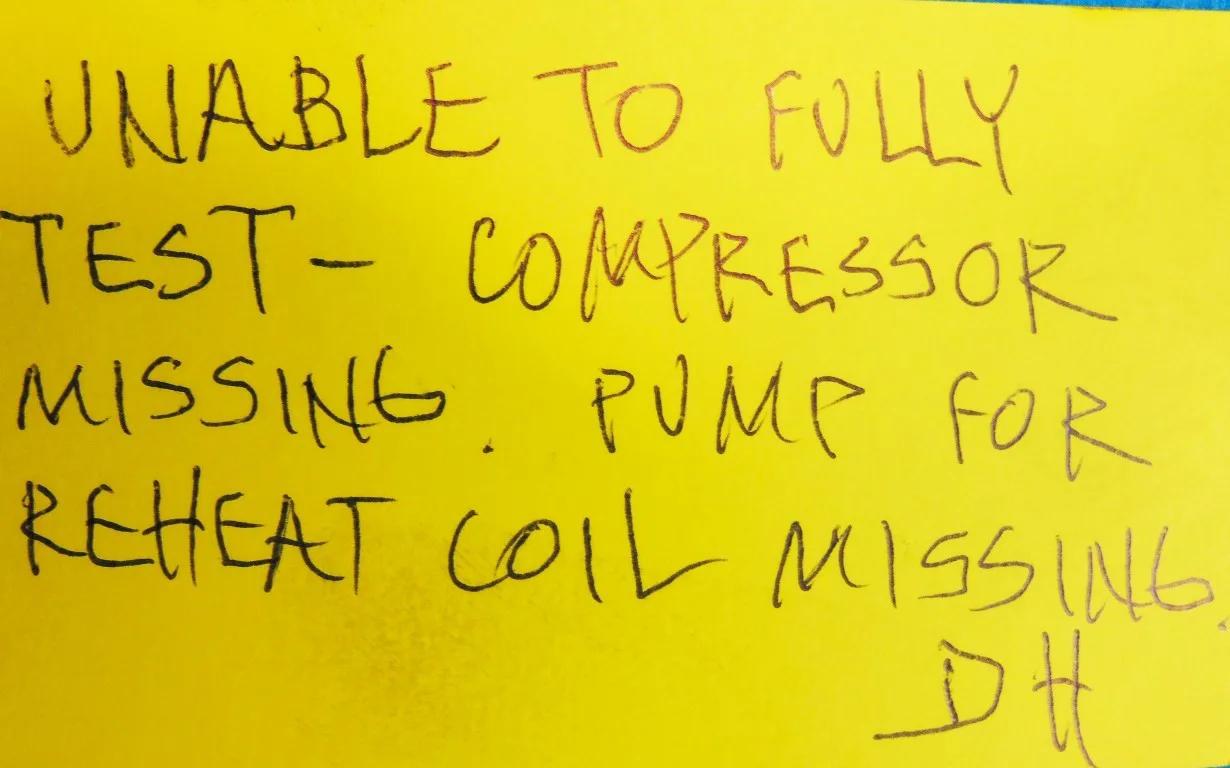 UNABLE TO FULLY
TEST- COMPRESSOR
MISSING. PUMP FOR
REHEAT COIL MISSING.
DH